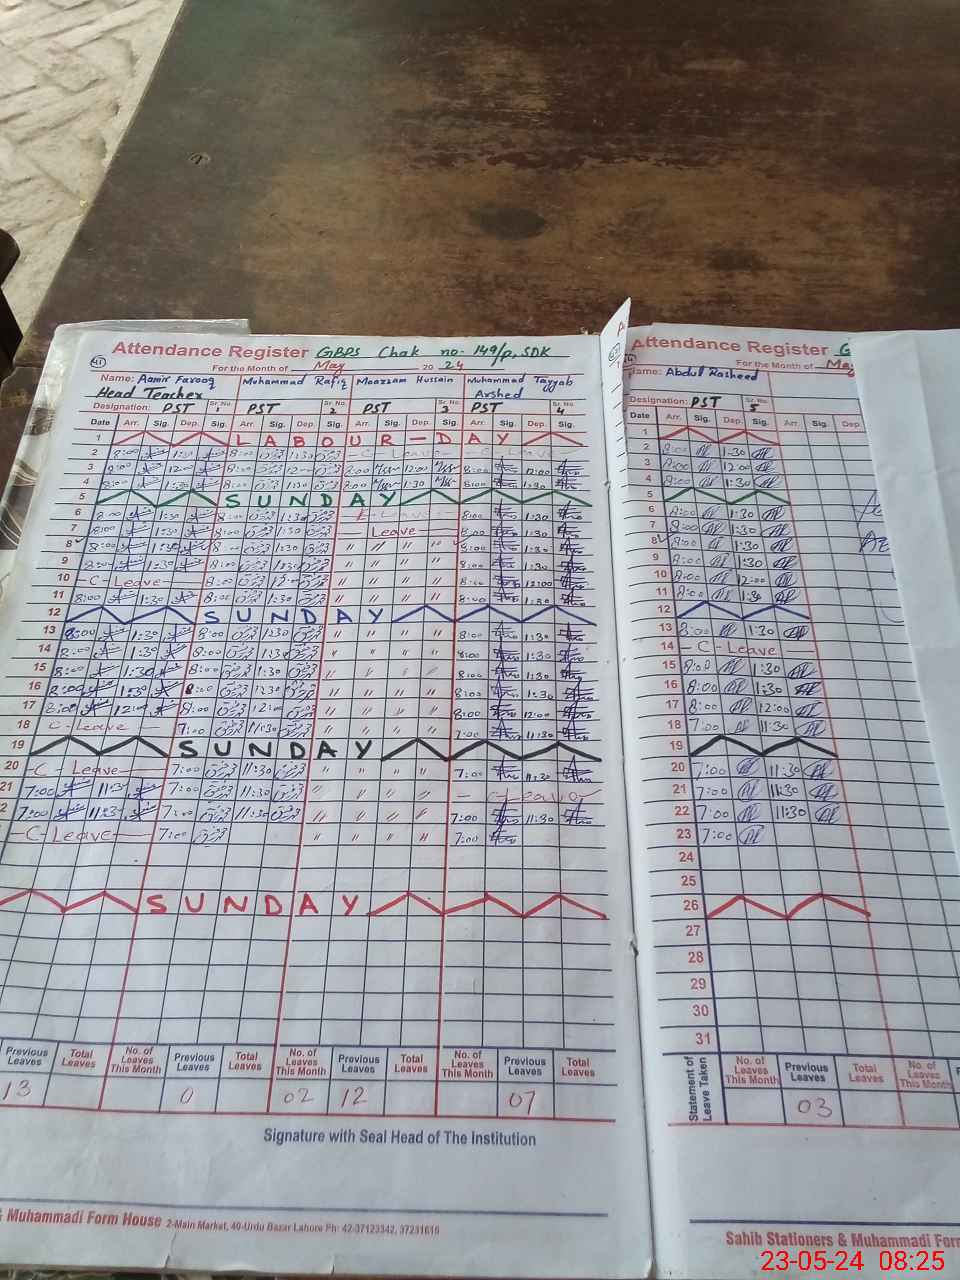 Attendance Register GBPS Chak no. 149/P, SDK
41 For the Month of May 20 24
Name: Aamir Farooq Muhammad Rafiq Moazzam Hussain Muhammad Tayyab
Head Teacher Arshed
Designation: PST Sr. No. 1 PST Sr. No. 2 PST Sr. No. 3 PST Sr. No. 4
Date Arr. Sig. Dep. Sig. Arr. Sig. Dep. Sig. Arr. Sig. Dep. Sig. Arr. Sig. Dep. Sig.
1 LABOUR-DAY
2 8:00 1:30 8:00 1:30 -C- Leave -C- Leave
3 8:00 12:00 8:00 12:00 8:00 12:00 8:00 12:00
4 8:00 1:30 8:00 1:30 8:00 1:30 8:00 1:30
5 SUNDAY
6 8:00 1:30 8:00 1:30 Leave 8:00 1:30
7 8:00 1:30 8:00 1:30 Leave 8:00 1:30
8 8:00 1:30 8:00 1:30 " " " " 8:00 1:30
9 8:00 1:30 8:00 1:30 " " " " 8:00 1:30
10 -C- Leave 8:00 12:00 " " " " 8:00 12:00
11 8:00 1:30 8:00 1:30 " " " " 8:00 1:30
12 SUNDAY
13 8:00 1:30 8:00 1:30 " " " " 8:00 1:30
14 8:00 1:30 8:00 1:30 " " " " 8:00 1:30
15 8:00 1:30 8:00 1:30 " " " " 8:00 1:30
16 8:00 1:30 8:00 1:30 " " " " 8:00 1:30
17 8:00 12:00 8:00 12:00 " " " " 8:00 12:00
18 C- Leave 7:00 11:30 " " " " 7:00 11:30
19 SUNDAY
20 -C- Leave 7:00 11:30 " " " " 7:00 11:30
21 7:00 11:30 7:00 11:30 " " " " - C-Leave
2 7:00 11:30 7:00 11:30 " " " " 7:00 11:30
-C-Leave 7:00 " " " " 7:00
SUNDAY
Previous Leaves Total Leaves No. of Leaves This Month Previous Leaves Total Leaves No. of Leaves This Month Previous Leaves Total Leaves No. of Leaves This Month Previous Leaves Total Leaves
13 0 02 12 07
Signature with Seal Head of The Institution
& Muhammadi Form House 2-Main Market, 40-Urdu Bazar Lahore Ph: 42-37123342, 37231616
Attendance Register G
For the Month of May
Name: Abdul Rasheed
Designation: PST Sr. No. 5
Date Arr. Sig. Dep. Sig. Arr. Sig. Dep.
1
2 8:00 1:30
3 8:00 12:00
4 8:00 1:30
5
6 8:00 1:30
7 8:00 1:30
8 8:00 1:30
9 8:00 1:30
10 8:00 12:00
11 8:00 1:30
12
13 8:00 1:30
14 -C-Leave
15 8:00 1:30
16 8:00 1:30
17 8:00 12:00
18 7:00 11:30
19
20 7:00 11:30
21 7:00 11:30
22 7:00 11:30
23 7:00
24
25
26
27
28
29
30
31
Statement of Leave Taken No. of Leaves This Month Previous Leaves Total Leaves No. of Leaves This Month
03
Sahib Stationers & Muhammadi For
23-05-24 08:25